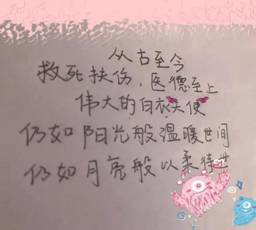 从古至今
救死扶伤，医德至上
伟大的白衣天使
仍如阳光般温暖世间
仍如月亮般以柔待世